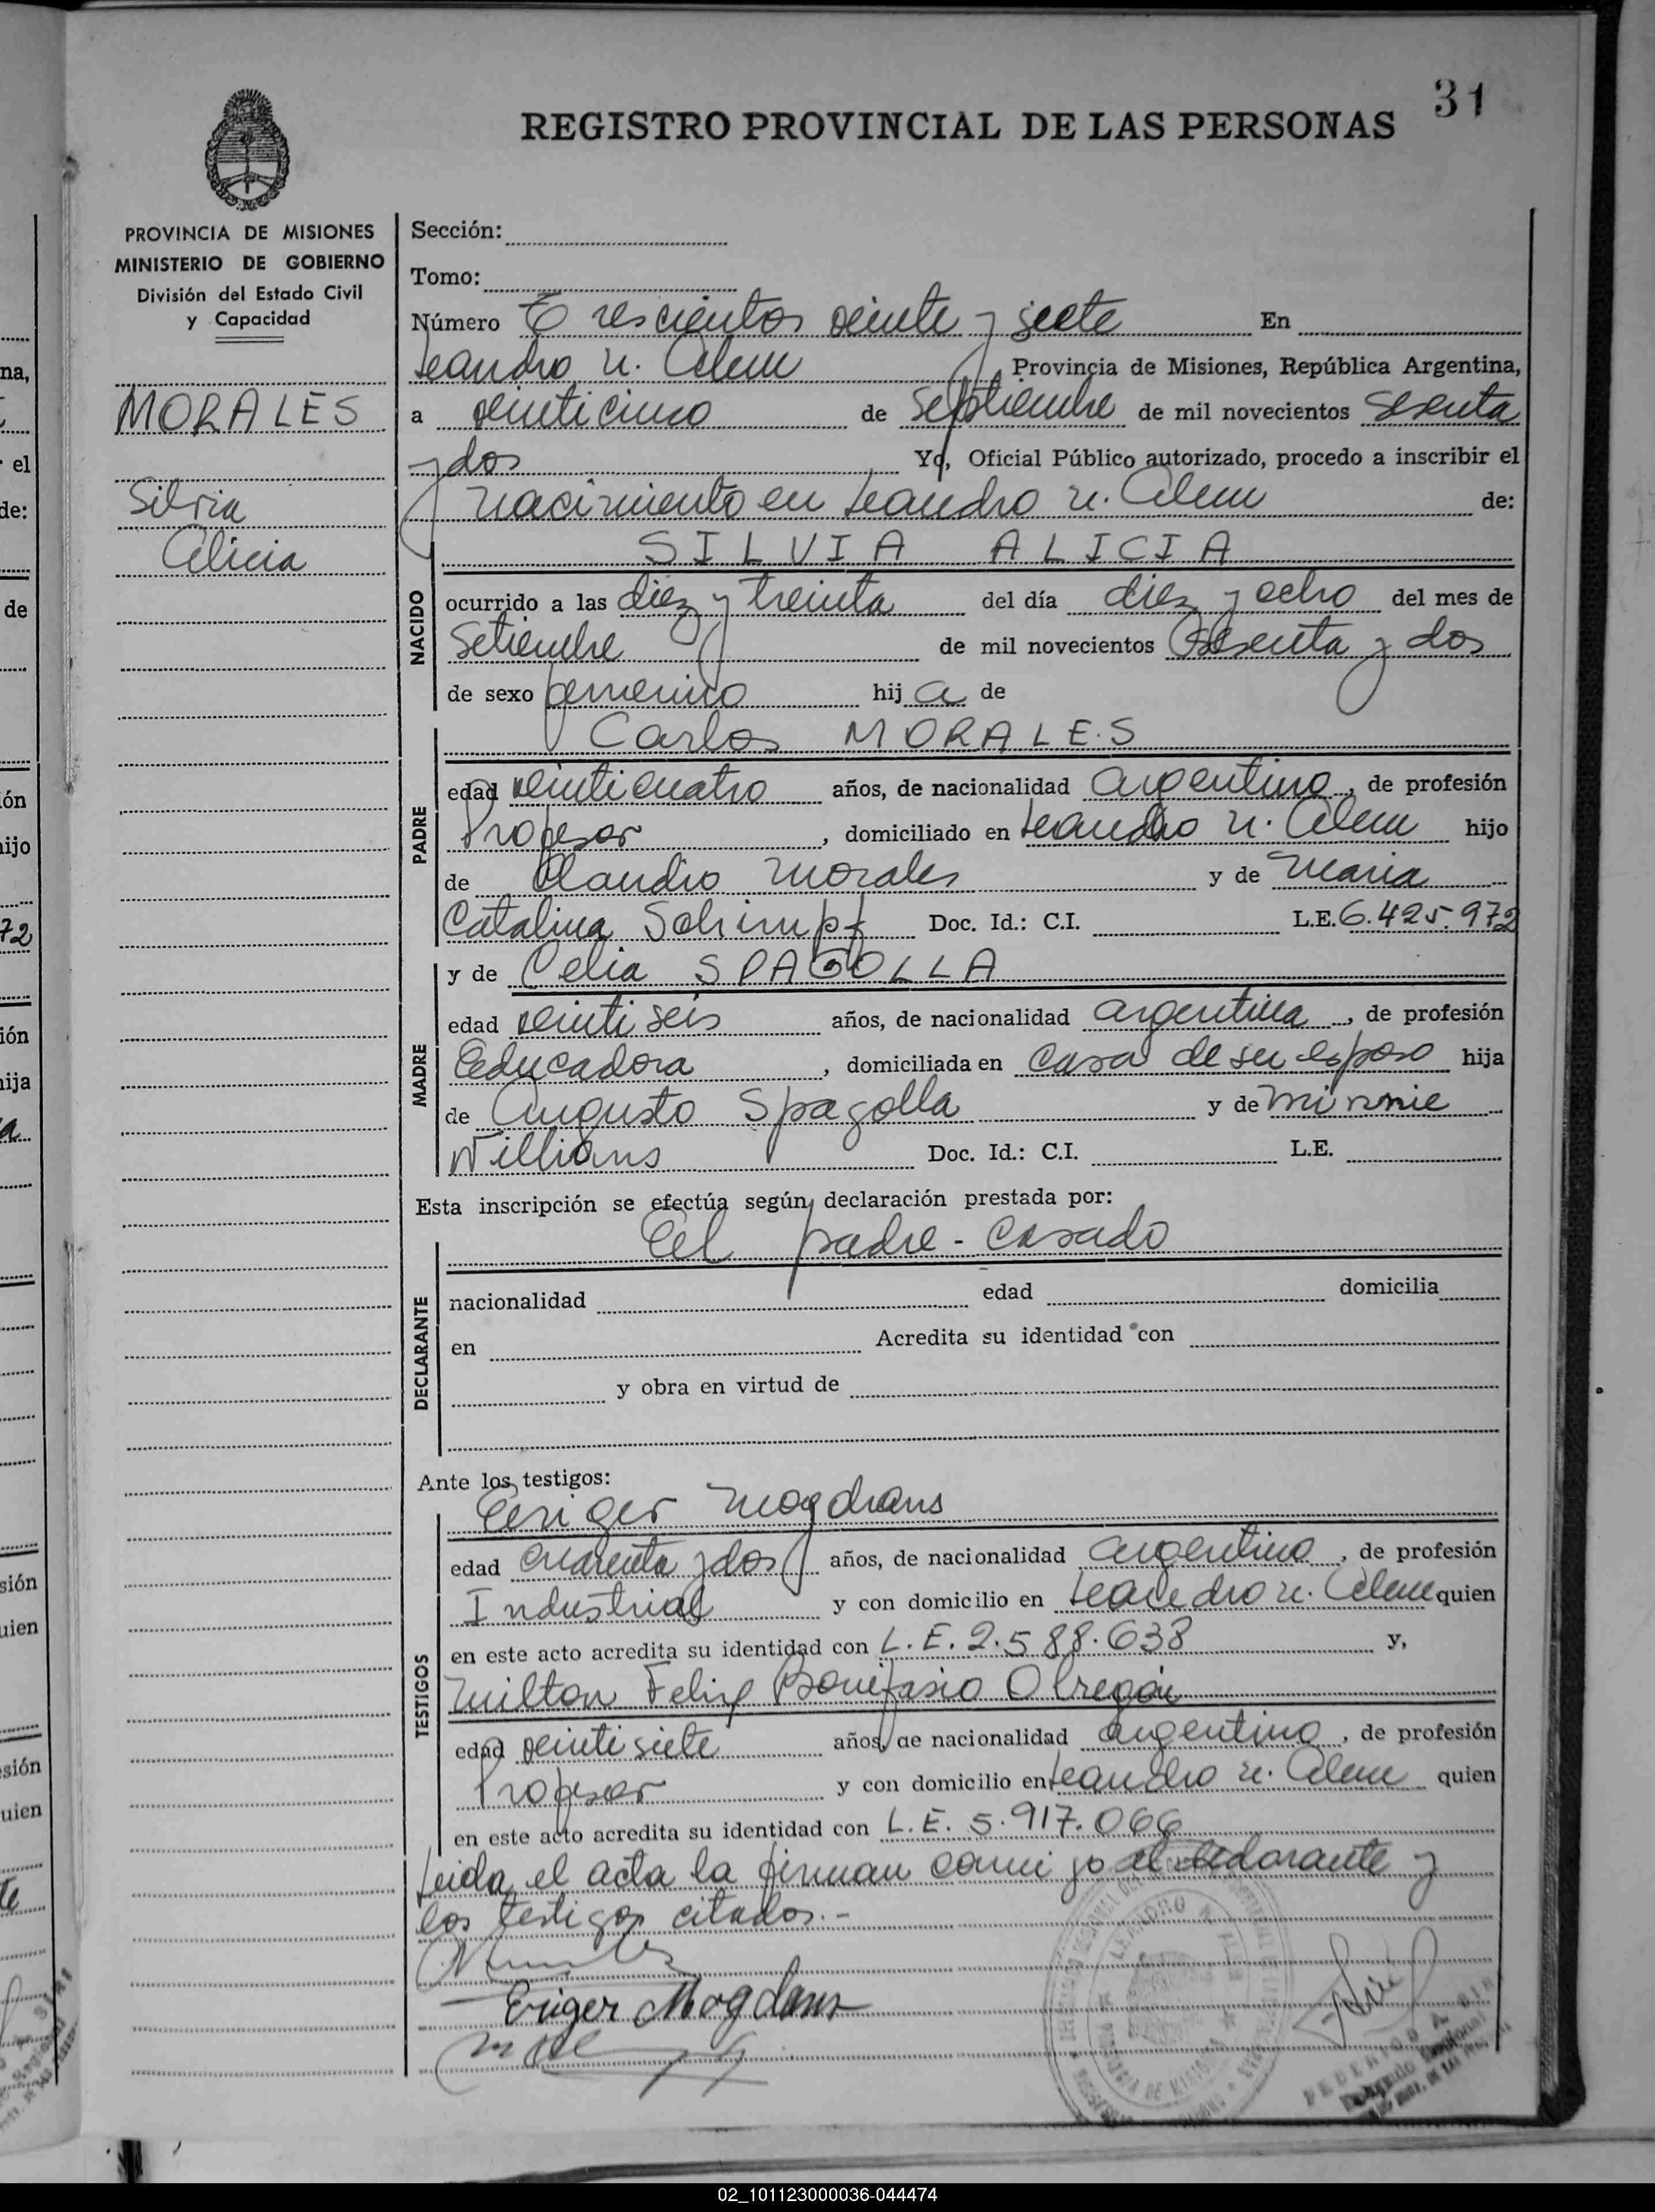 31
REGISTRO PROVINCIAL DE LAS PERSONAS
PROVINCIA DE MISIONES
MINISTERIO DE GOBIERNO
División del Estado Civil
y Capacidad
MORALES
Silvia
Alicia
Sección:
Tomo:
Número Trescientos veinte y siete En
Leandro N. Alem Provincia de Misiones, República Argentina,
a veinticinco de Septiembre de mil novecientos sesenta
y dos Yo, Oficial Público autorizado, procedo a inscribir el
nacimiento en Leandro N. Alem de:
SILVIA ALICIA
NACIDO
ocurrido a las diez y treinta del día diez y ocho del mes de
Setiembre de mil novecientos sesenta y dos
de sexo femenino hija de
Carlos MORALES
PADRE
edad veinticuatro años, de nacionalidad argentino, de profesión
Profesor, domiciliado en Leandro N. Alem hijo
de Claudio Morales y de Maria
Catalina Schimpf Doc. Id.: C.I. L.E. 6.425.972
y de Celia SPAGOLLA
MADRE
edad veinti seis años, de nacionalidad argentina, de profesión
Educadora, domiciliada en casa de su esposo hija
de Augusto Spagolla y de Minnie
Willians Doc. Id.: C.I. L.E.
Esta inscripción se efectúa según declaración prestada por:
El padre - casado
DECLARANTE
nacionalidad edad domicilia
en Acredita su identidad con
y obra en virtud de
Ante los testigos:
Eriger Mogdans
TESTIGOS
edad cuarenta y dos años, de nacionalidad argentino, de profesión
Industrial y con domicilio en Leandro N. Alem quien
en este acto acredita su identidad con L.E. 2.588.638 y,
Milton Felix Bonifasio Obregón
edad veinti siete años, de nacionalidad argentino, de profesión
Profesor y con domicilio en Leandro N. Alem quien
en este acto acredita su identidad con L.E. 5.917.066
Leida el acta la firman conmigo el declarante y
los testigos citados.-
Eriger Mogdans
02_101123000036-044474